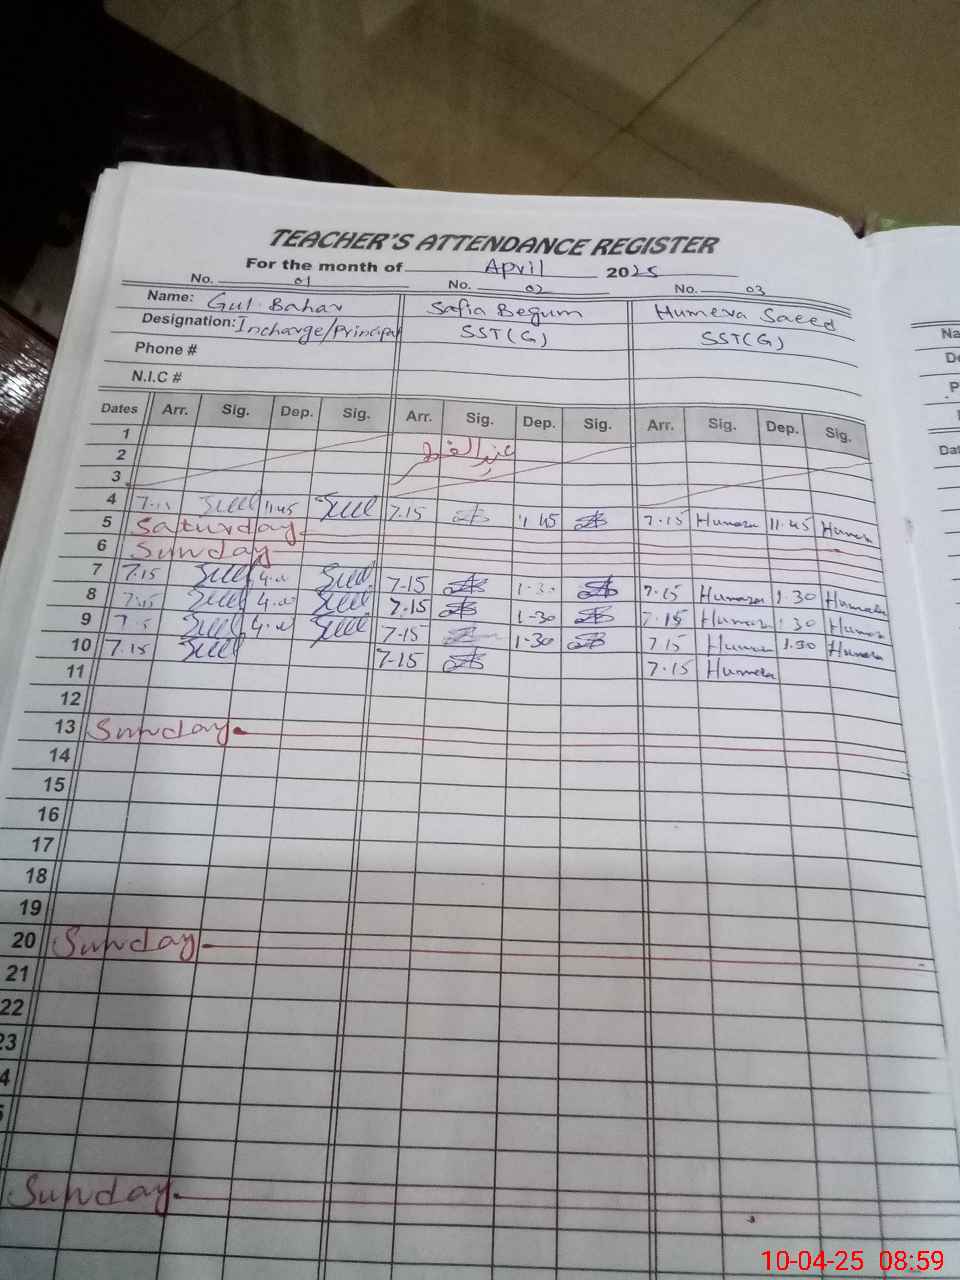 TEACHER'S ATTENDANCE REGISTER
For the month of April 2025
No. 01 No. 02 No. 03
Name: Gul Bahar Safia Begum Humera Saeed
Designation: Incharge/Principal SST(G) SST(G)
Phone #
N.I.C #
Dates Arr. Sig. Dep. Sig. Arr. Sig. Dep. Sig. Arr. Sig. Dep. Sig.
1
2 عید الفطر
3
4 7.15 11.45 7.15 11.45 7.15 Humera 11.45 Humera
5 Saturday
6 Sunday
7 7.15 4.00 7-15 1-30 7.15 Humera 1.30 Humera
8 7.15 4.00 7.15 1-30 7.15 Humera 1.30 Humera
9 7.15 4.00 7-15 1-30 7.15 Humera 1.30 Humera
10 7.15 7-15 7.15 Humera
11
12
13 Sunday
14
15
16
17
18
19
20 Sunday
21
22
23
Sunday
10-04-25 08:59